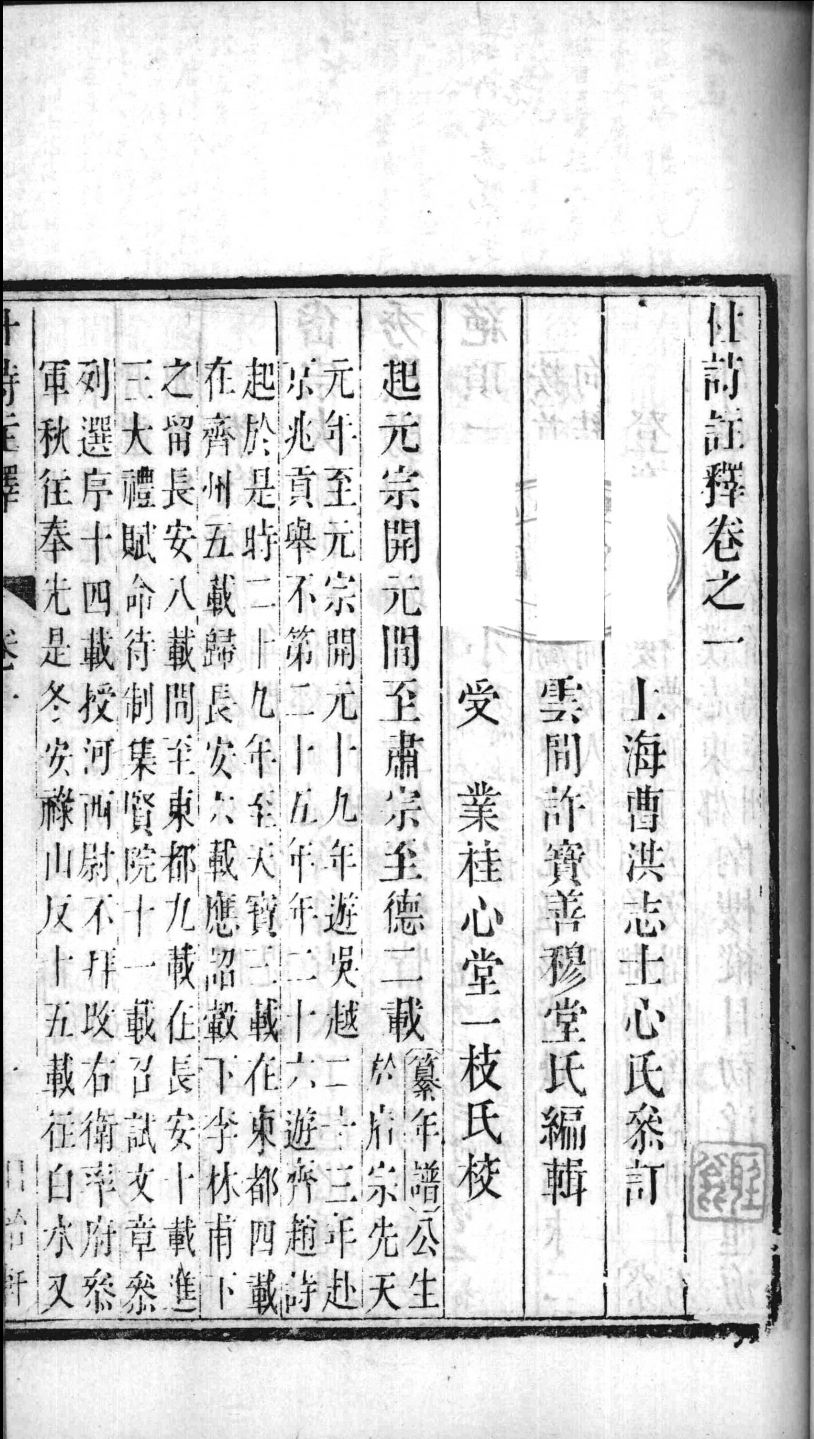 杜詩註釋卷之一
上海曹洪志士心氏叅訂
雲間許寶善穆堂氏編輯
受業桂心堂一枝氏校
起元宗開元間至肅宗至德二載
纂年譜公生
於睿宗先天
元年至元宗開元十九年遊吳越二十三年赴
京兆貢舉不第二十五年年二十六遊齊趙詩
起於是時二十九年至天寶三載在東都四載
在齊州五載歸長安六載應詔轂下李林甫下
之留長安八載間至東都九載在長安十載進
三大禮賦命待制集賢院十一載召試文章叅
列選序十四載授河西尉不拜改右衛率府叅
軍秋往奉先是冬安祿山反十五載往白水又
杜詩註釋
卷一
軒